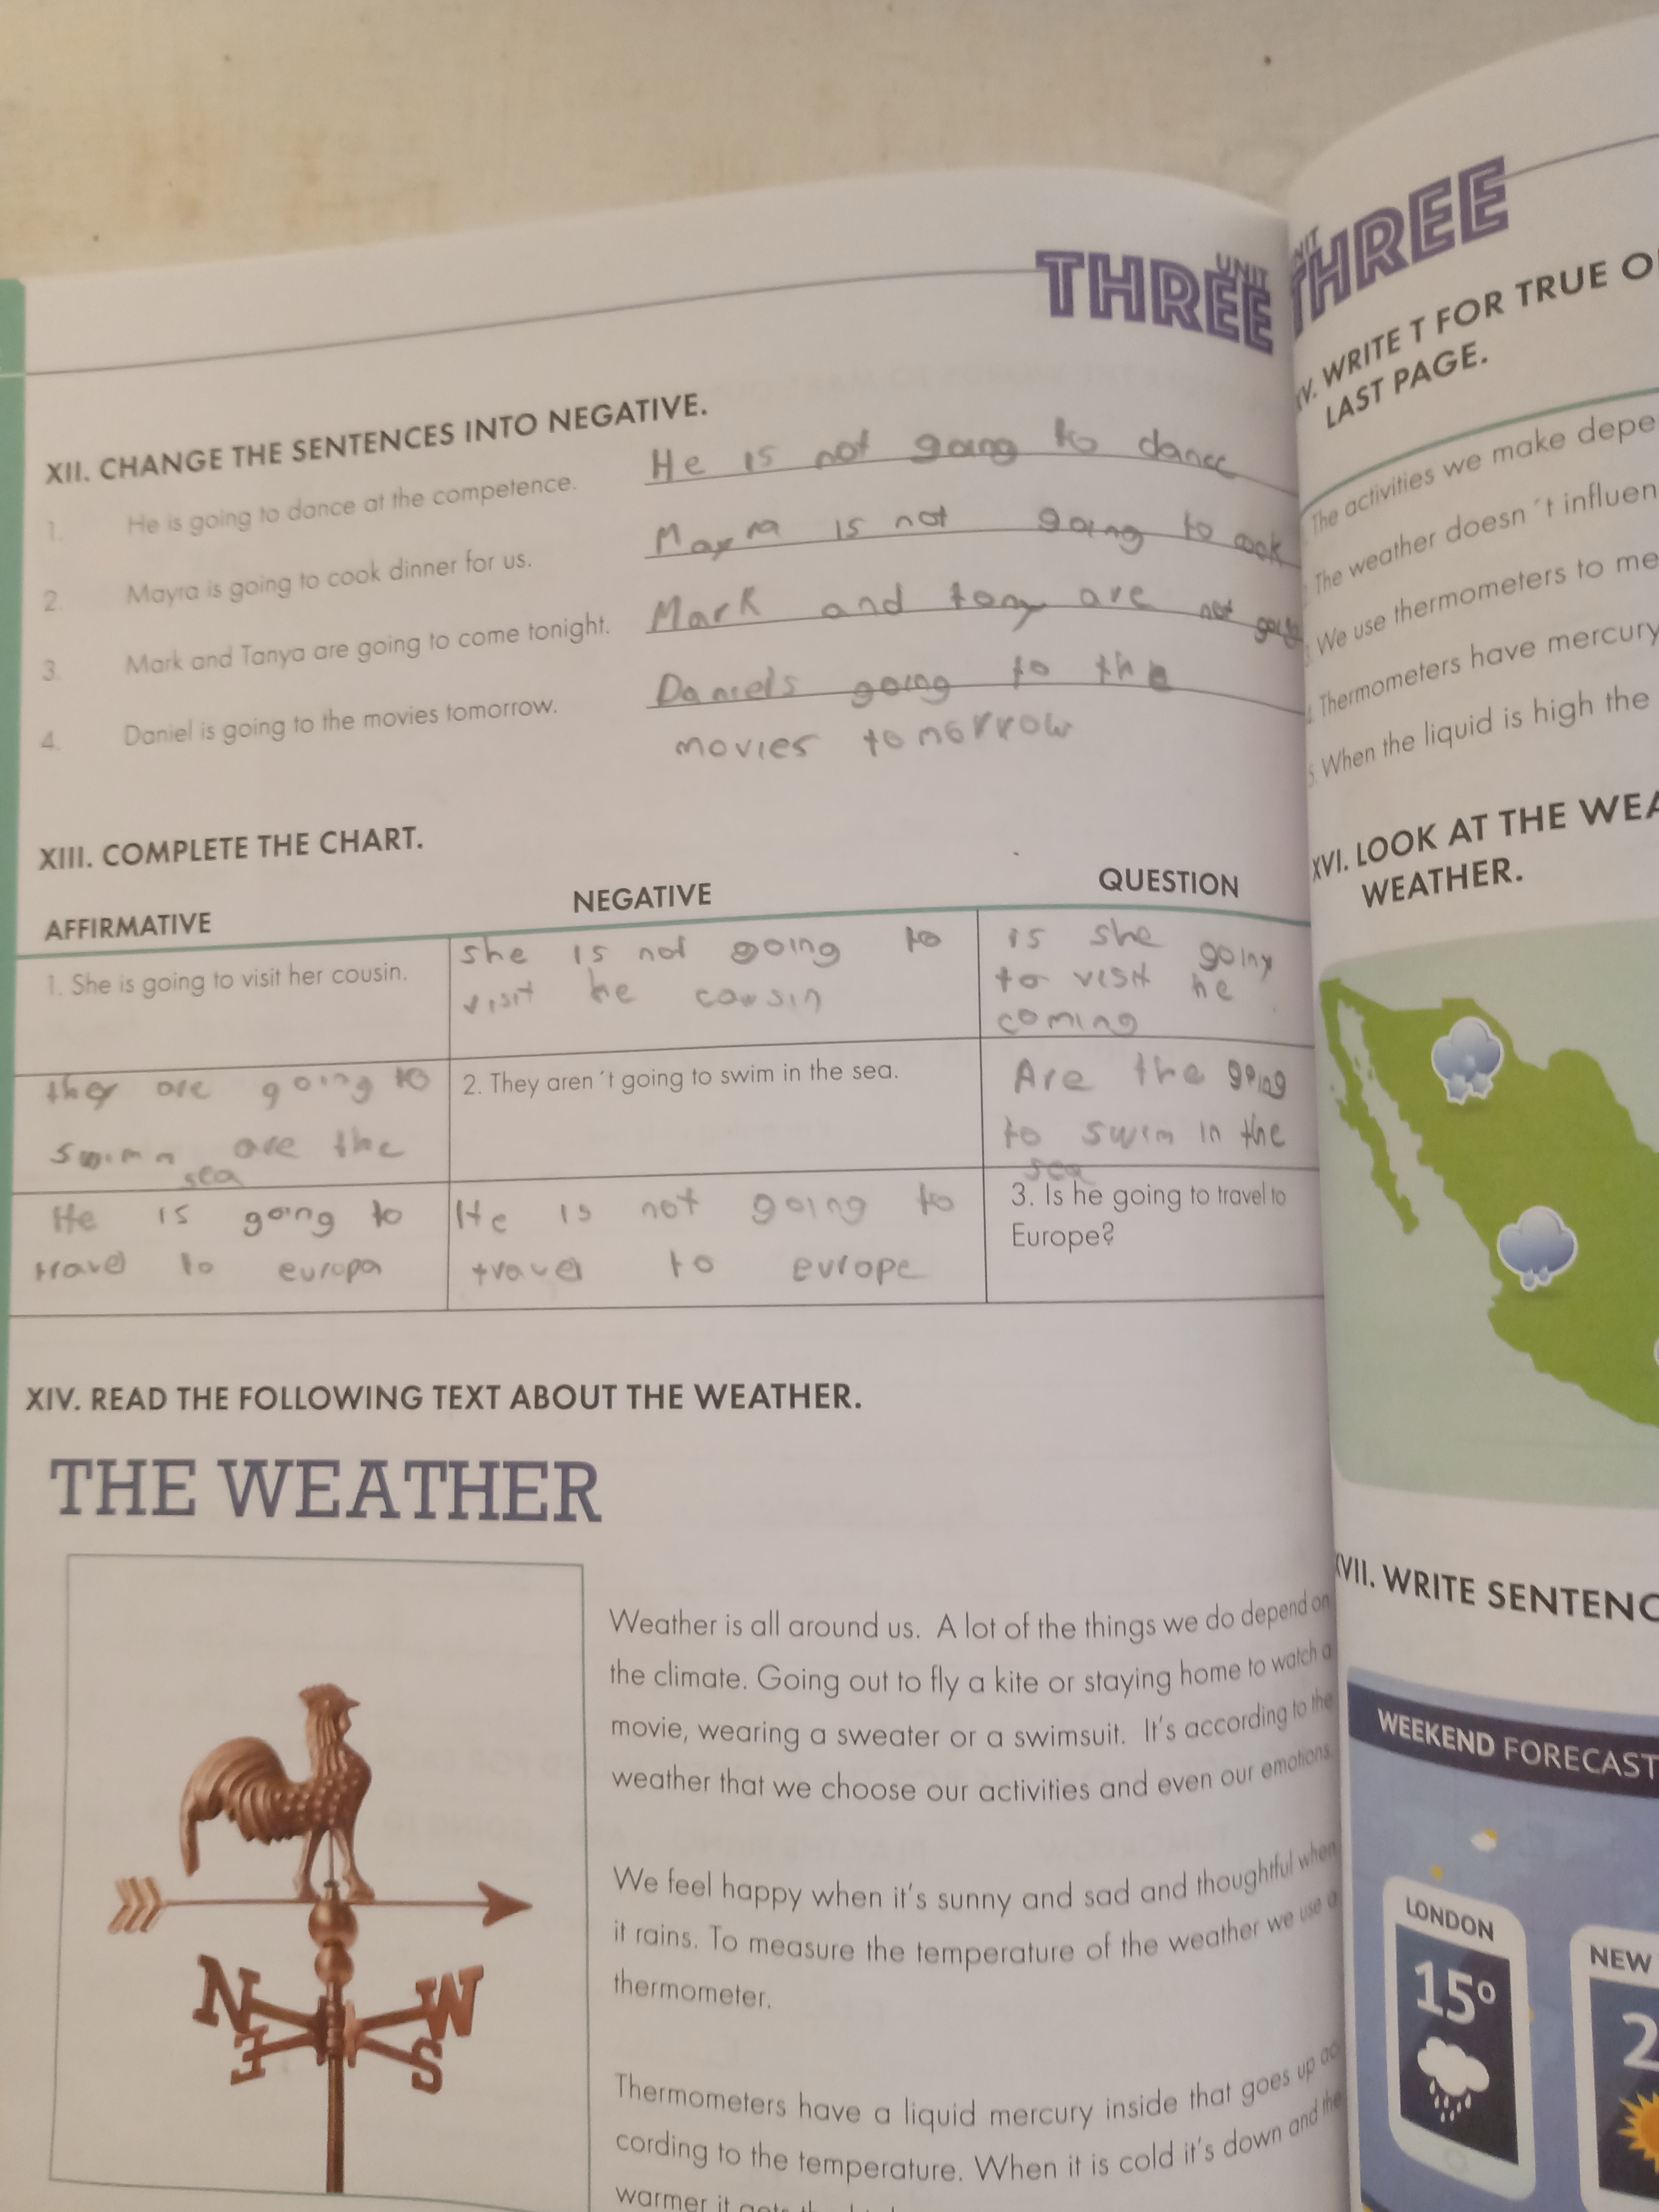 UNIT
THREE
XII. CHANGE THE SENTENCES INTO NEGATIVE.
1. He is going to dance at the competence. He is not going to dance
2. Mayra is going to cook dinner for us. Mayra is not going to cook
3. Mark and Tanya are going to come tonight. Mark and tony are not
4. Daniel is going to the movies tomorrow. Daniels going to the
movies tomorrow
XIII. COMPLETE THE CHART.
AFFIRMATIVE NEGATIVE QUESTION
1. She is going to visit her cousin.
she is not going to
visit he cousin
is she going
to visit he
coming
they are going to
swimm are the
sea
2. They aren´t going to swim in the sea.
Are the going
to swim in the
sea
He is going to
travel to europa
He is not going to
travel to europe
3. Is he going to travel to
Europe?
XIV. READ THE FOLLOWING TEXT ABOUT THE WEATHER.
THE WEATHER
N
W
E
S
Weather is all around us. A lot of the things we do depend on
the climate. Going out to fly a kite or staying home to watch a
movie, wearing a sweater or a swimsuit. It's according to the
weather that we choose our activities and even our emotions.
We feel happy when it's sunny and sad and thoughtful when
it rains. To measure the temperature of the weather we use a
thermometer.
Thermometers have a liquid mercury inside that goes up ac-
cording to the temperature. When it is cold it's down and the
warmer it gets
UNIT
THREE
XV. WRITE T FOR TRUE
LAST PAGE.
The activities we make
The weather doesn´t
We use thermometers to
4. Thermometers have mercury
5. When the liquid is high the
XVI. LOOK AT THE
WEATHER.
XVII. WRITE
WEEKEND FORECAST
LONDON
15°
NEW
2